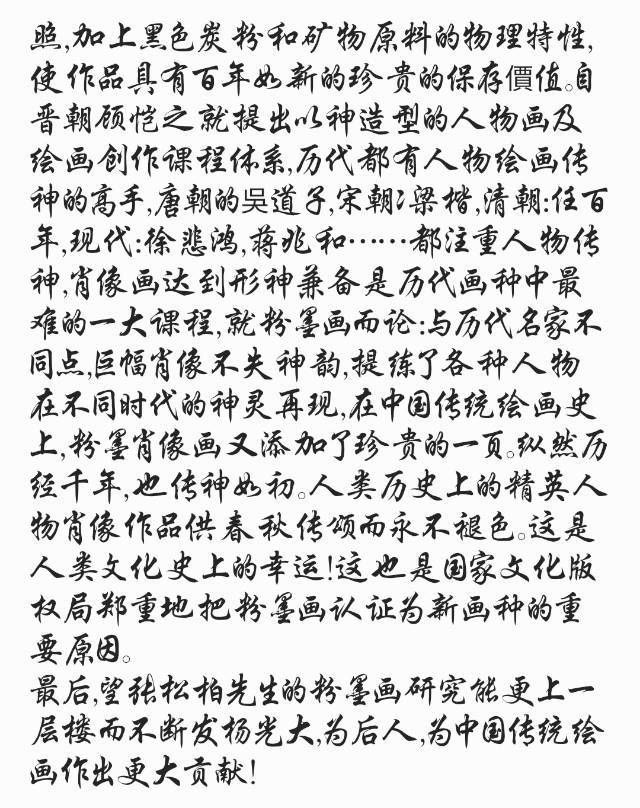 照,加上黑色炭粉和矿物原料的物理特性,
使作品具有百年如新的珍贵的保存價值。自
晋朝顾恺之就提出以神造型的人物画及
绘画创作课程体系,历代都有人物绘画传
神的高手,唐朝的吳道子,宋朝:梁楷,清朝:任百
年,现代:徐悲鸿,蒋兆和……都注重人物传
神,肖像画达到形神兼备是历代画种中最
难的一大课程,就粉墨画而论:与历代名家不
同点,巨幅肖像不失神韵,提练了各种人物
在不同时代的神灵再现,在中国传统绘画史
上,粉墨肖像画又添加了珍贵的一页。纵然历
经千年,也传神如初。人类历史上的精英人
物肖像作品供春秋传颂而永不褪色。这是
人类文化史上的幸运!这也是国家文化版
权局郑重地把粉墨画认证为新画种的重
要原因。
最后,望张松柏先生的粉墨画研究能更上一
层楼而不断发扬光大,为后人,为中国传统绘
画作出更大贡献!